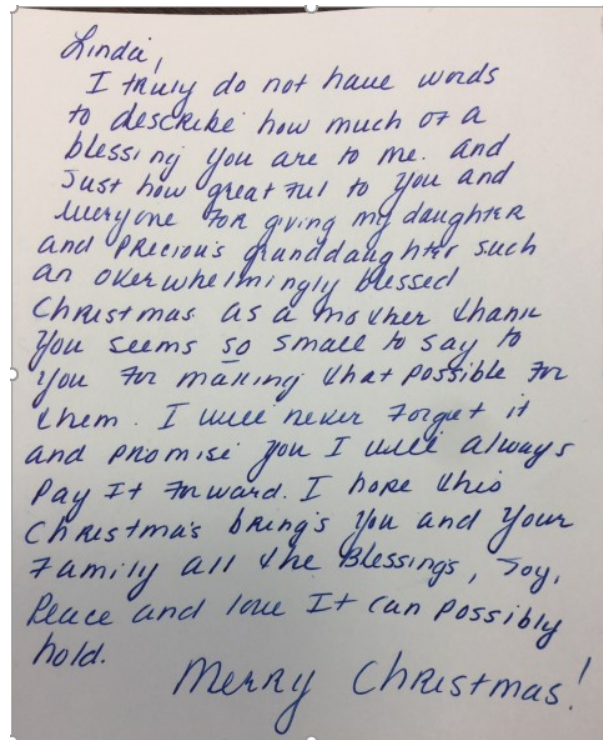 Linda,
I truly do not have words
to describe how much of a
blessing you are to me. and
Just how greatful to you and
everyone for giving my daughter
and precious granddaughter such
an overwhelmingly blessed
Christmas. as a mother thank
you seems so small to say to
you for making that possible for
them. I will never forget it
and promise you I will always
Pay It forward. I hope this
Christmas bring's you and your
Family all the Blessings, Joy,
Peace and love It can possibly
hold.
Merry Christmas!